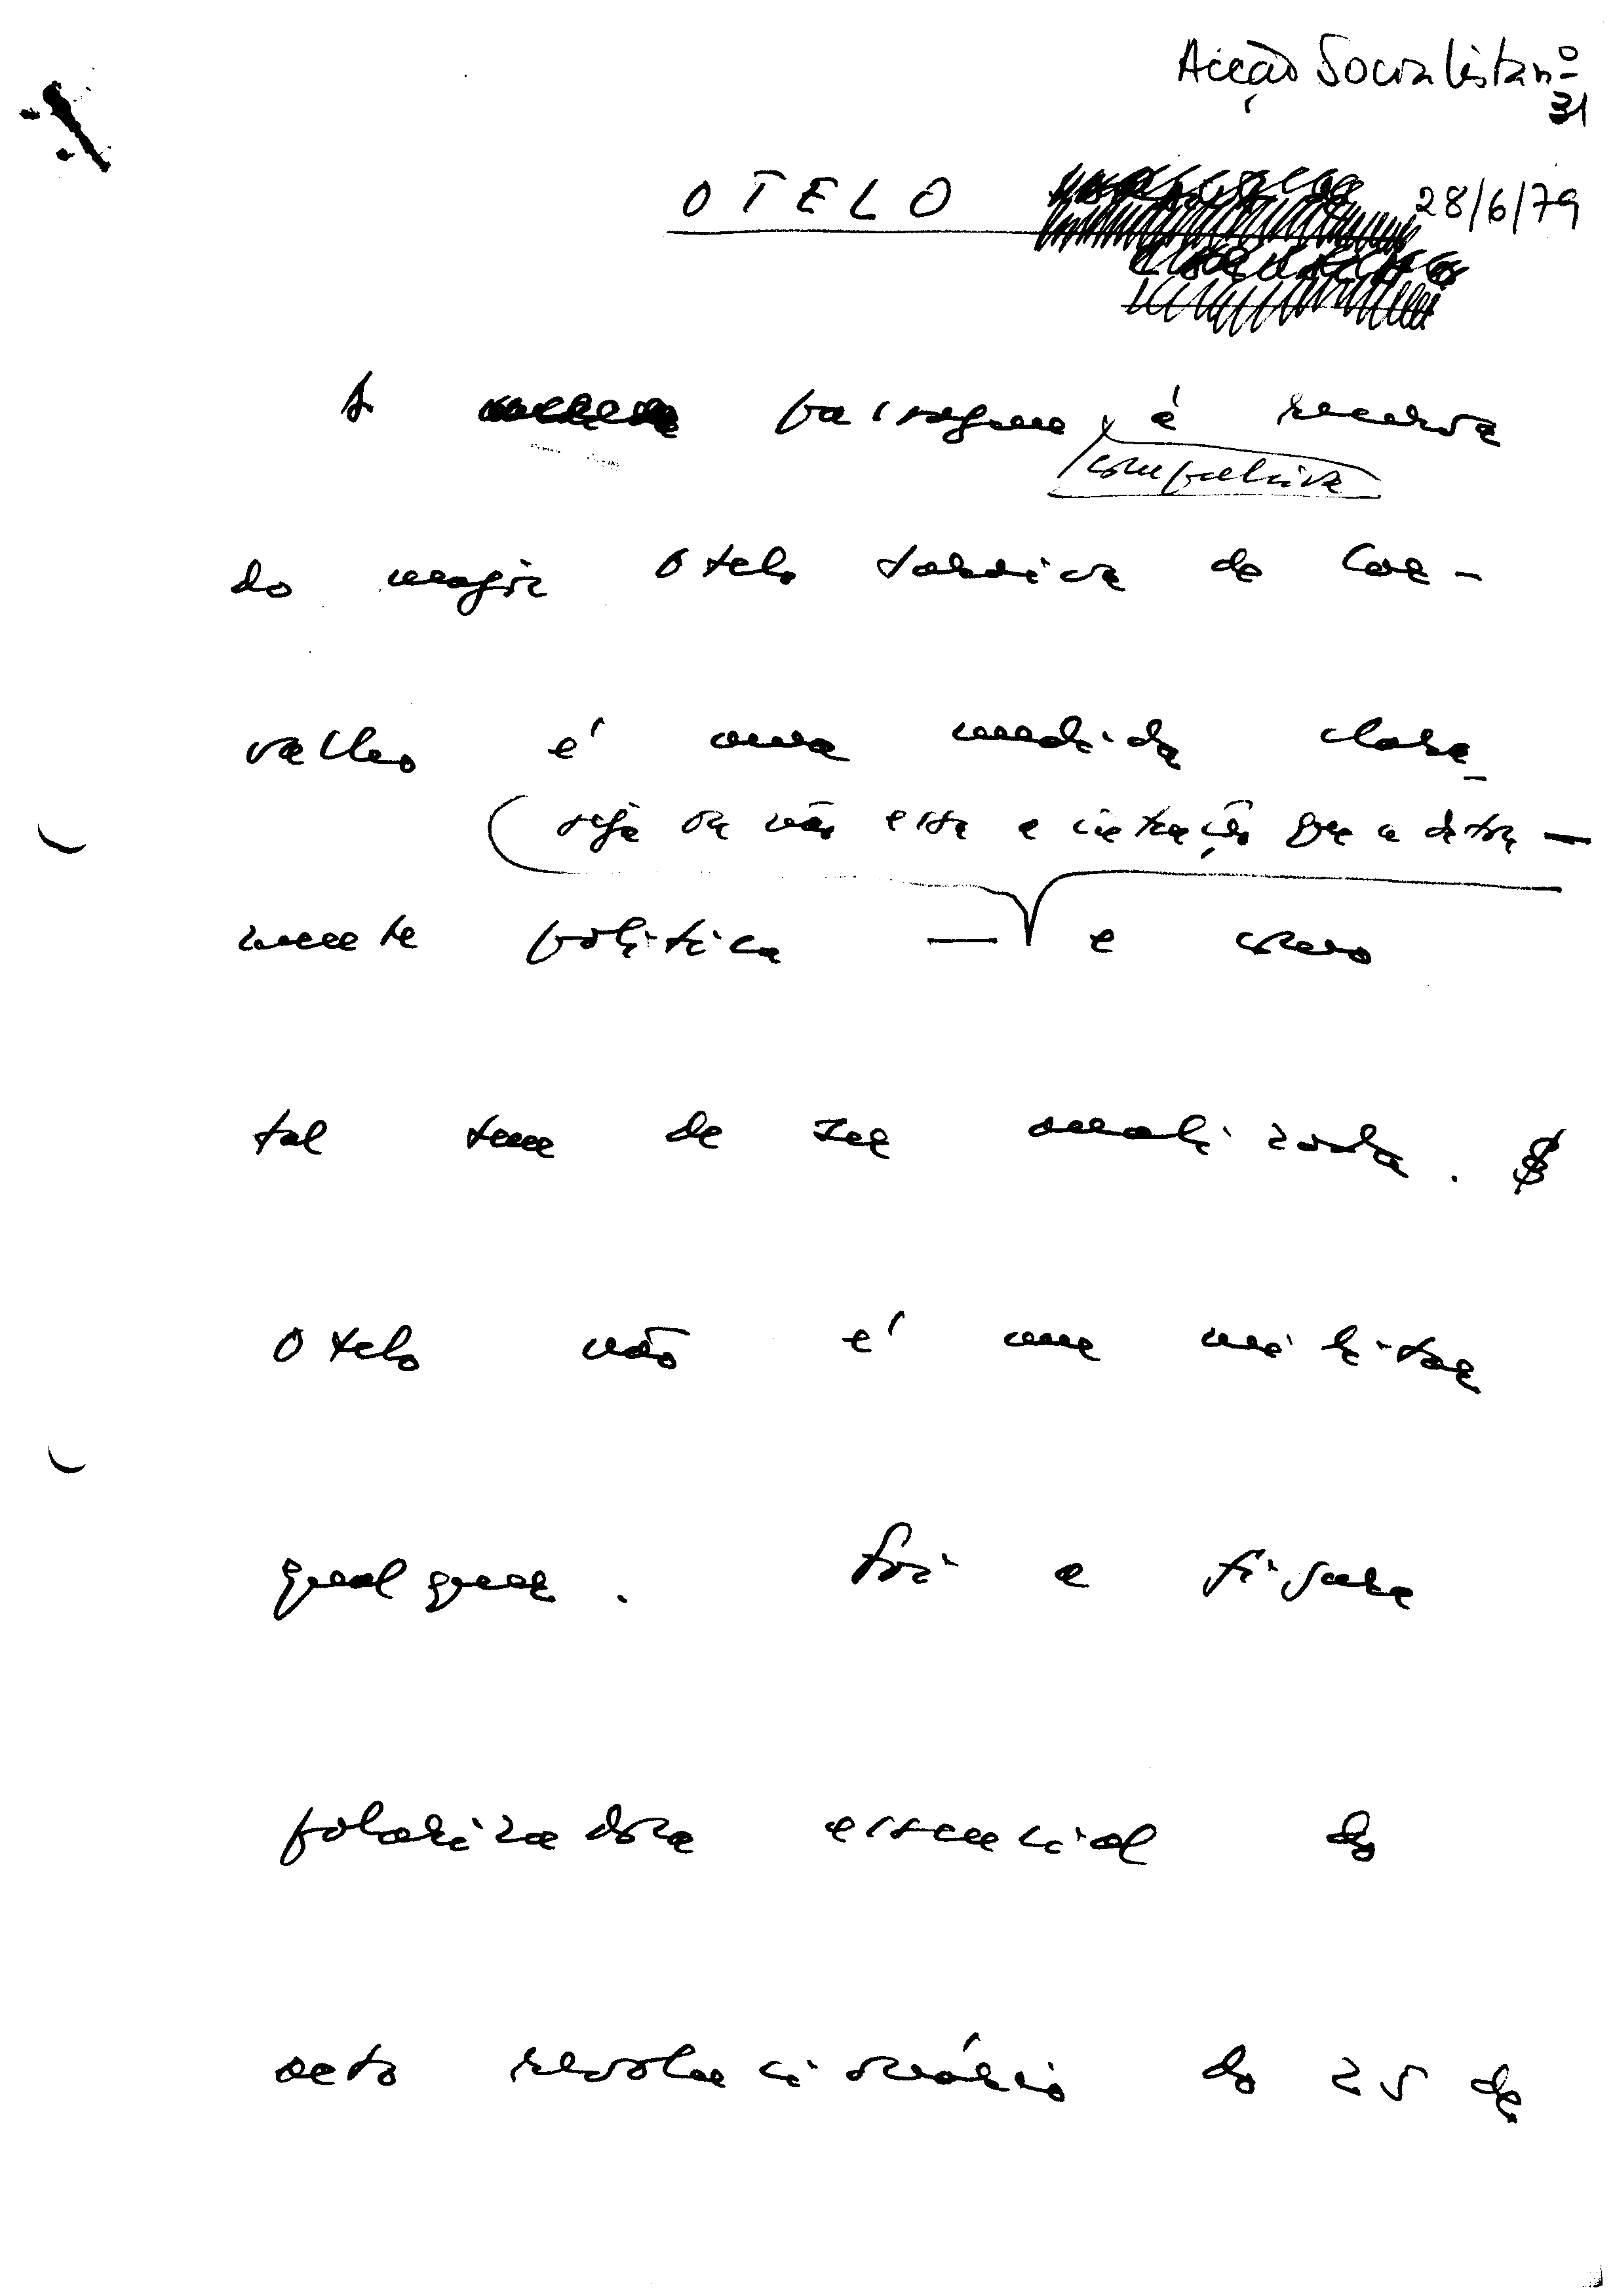 Acção Socialista nº
31
OTELO
28/6/79
A passagem à reserva
compulsiva
do major Otelo Saraiva de Car-
valho é uma medida clara-
seja ou não essa a intenção que a ditou —
mente política — e como
tal tem de ser analisada. $
Otelo não é um militar
qualquer. Foi a figura
polarizadora essencial do
acto revolucionário do 25 de